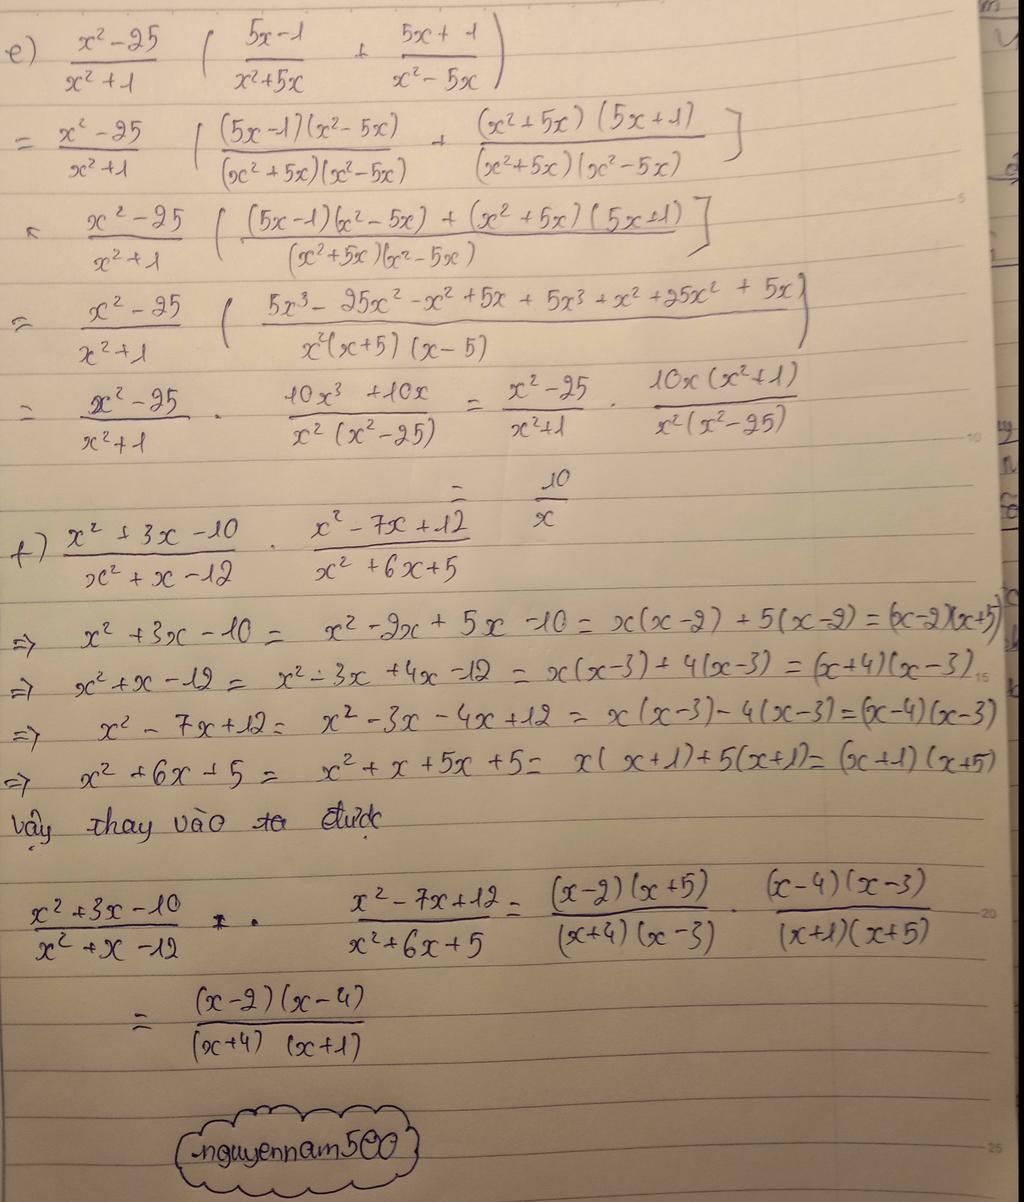 e) \frac{x^2-25}{x^2+1} ( \frac{5x-1}{x^2+5x} + \frac{5x+1}{x^2-5x} )
= \frac{x^2-25}{x^2+1} ( \frac{(5x-1)(x^2-5x)}{(x^2+5x)(x^2-5x)} + \frac{(x^2+5x)(5x+1)}{(x^2+5x)(x^2-5x)} ]
= \frac{x^2-25}{x^2+1} ( \frac{(5x-1)(x^2-5x)+(x^2+5x)(5x+1)}{(x^2+5x)(x^2-5x)} ]
= \frac{x^2-25}{x^2+1} ( \frac{5x^3-25x^2-x^2+5x+5x^3+x^2+25x^2+5x}{x^2(x+5)(x-5)} )
= \frac{x^2-25}{x^2+1} . \frac{10x^3+10x}{x^2(x^2-25)} = \frac{x^2-25}{x^2+1} . \frac{10x(x^2+1)}{x^2(x^2-25)}
= \frac{10}{x}
f) \frac{x^2+3x-10}{x^2+x-12} . \frac{x^2-7x+12}{x^2+6x+5}
=> x^2+3x-10 = x^2-2x+5x-10 = x(x-2)+5(x-2) = (x-2)(x+5)
=> x^2+x-12 = x^2-3x+4x-12 = x(x-3)+4(x-3) = (x+4)(x-3)
=> x^2-7x+12 = x^2-3x-4x+12 = x(x-3)-4(x-3) = (x-4)(x-3)
=> x^2+6x+5 = x^2+x+5x+5 = x(x+1)+5(x+1) = (x+1)(x+5)
vậy thay vào ta được
\frac{x^2+3x-10}{x^2+x-12} . \frac{x^2-7x+12}{x^2+6x+5} = \frac{(x-2)(x+5)}{(x+4)(x-3)} . \frac{(x-4)(x-3)}{(x+1)(x+5)}
= \frac{(x-2)(x-4)}{(x+4)(x+1)}
nguyennam500